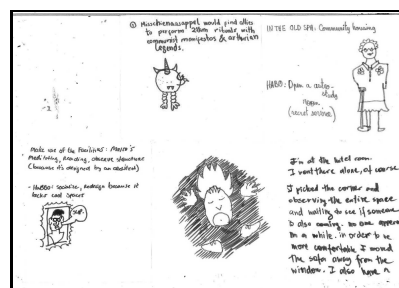 Misschiennaappel would find allies
to perform rituals with
communist manifestos & arthurian
legends.
IN THE OLD SPA: Community housing
HABBO: Open a
study
room
(secret service)
Make use of the facilities:
Meditating, Reading, observe structure
(because it's designed by an architect)
- HABBO: socialise, redesign because it
lacks cool spaces
I'm at the hotel room.
I went there alone, of course
I picked the corner and
observing the entire space
and waiting to see if someone
is also coming. no one appears
in a while. in order to be
more comfortable I moved
the sofa away from the
window. I also have